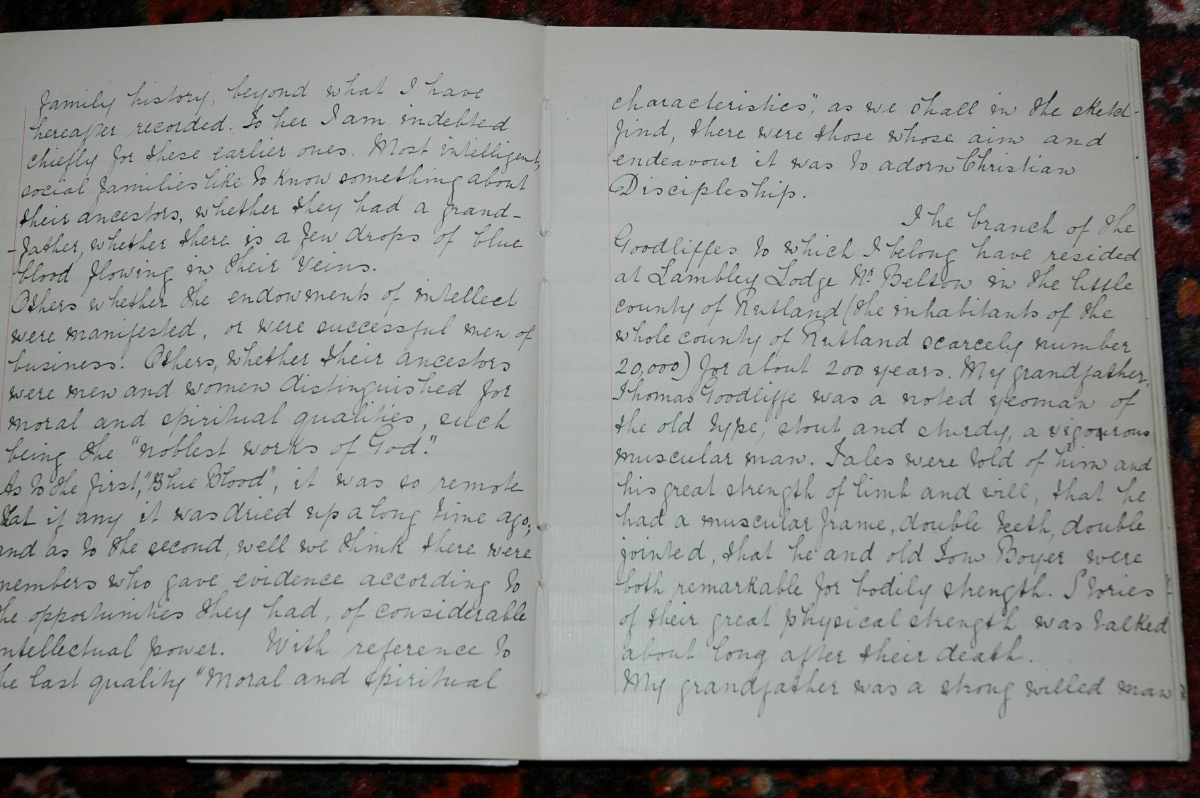 family history, beyond what I have
hereafter recorded. To her I am indebted
chiefly for these earlier ones. Most intelligent,
social families like to know something about
their ancestors, whether they had a grand-
-father, whether there is a few drops of blue
blood flowing in their veins.
Others whether the endowments of intellect
were manifested, or were successful men of
business. Others, whether their ancestors
were men and women distinguished for
moral and spiritual qualities, such
being the "noblest works of God".
As to the first, "Blue Blood", it was so remote
that if any it was dried up a long time ago,
and as to the second, well we think there were
members who gave evidence according to
the opportunities they had, of considerable
intellectual power. With reference to
the last quality "Moral and Spiritual
characteristics", as we shall in the sketch
find, there were those whose aim and
endeavour it was to adorn Christian
Discipleship.
The branch of the
Goodliffes to which I belong have resided
at Lambley Lodge Nr Belton in the little
county of Rutland (the inhabitants of the
whole county of Rutland scarcely number
20,000) for about 200 years. My grandfather,
Thomas Goodliffe was a noted yeoman of
the old type, stout and sturdy, a vigourous
muscular man. Tales were told of him and
his great strength of limb and will, that he
had a muscular frame, double teeth, double
jointed, that he and old Tom Boyer were
both remarkable for bodily strength. Stories
of their great physical strength was talked
about long after their death.
My grandfather was a strong willed man